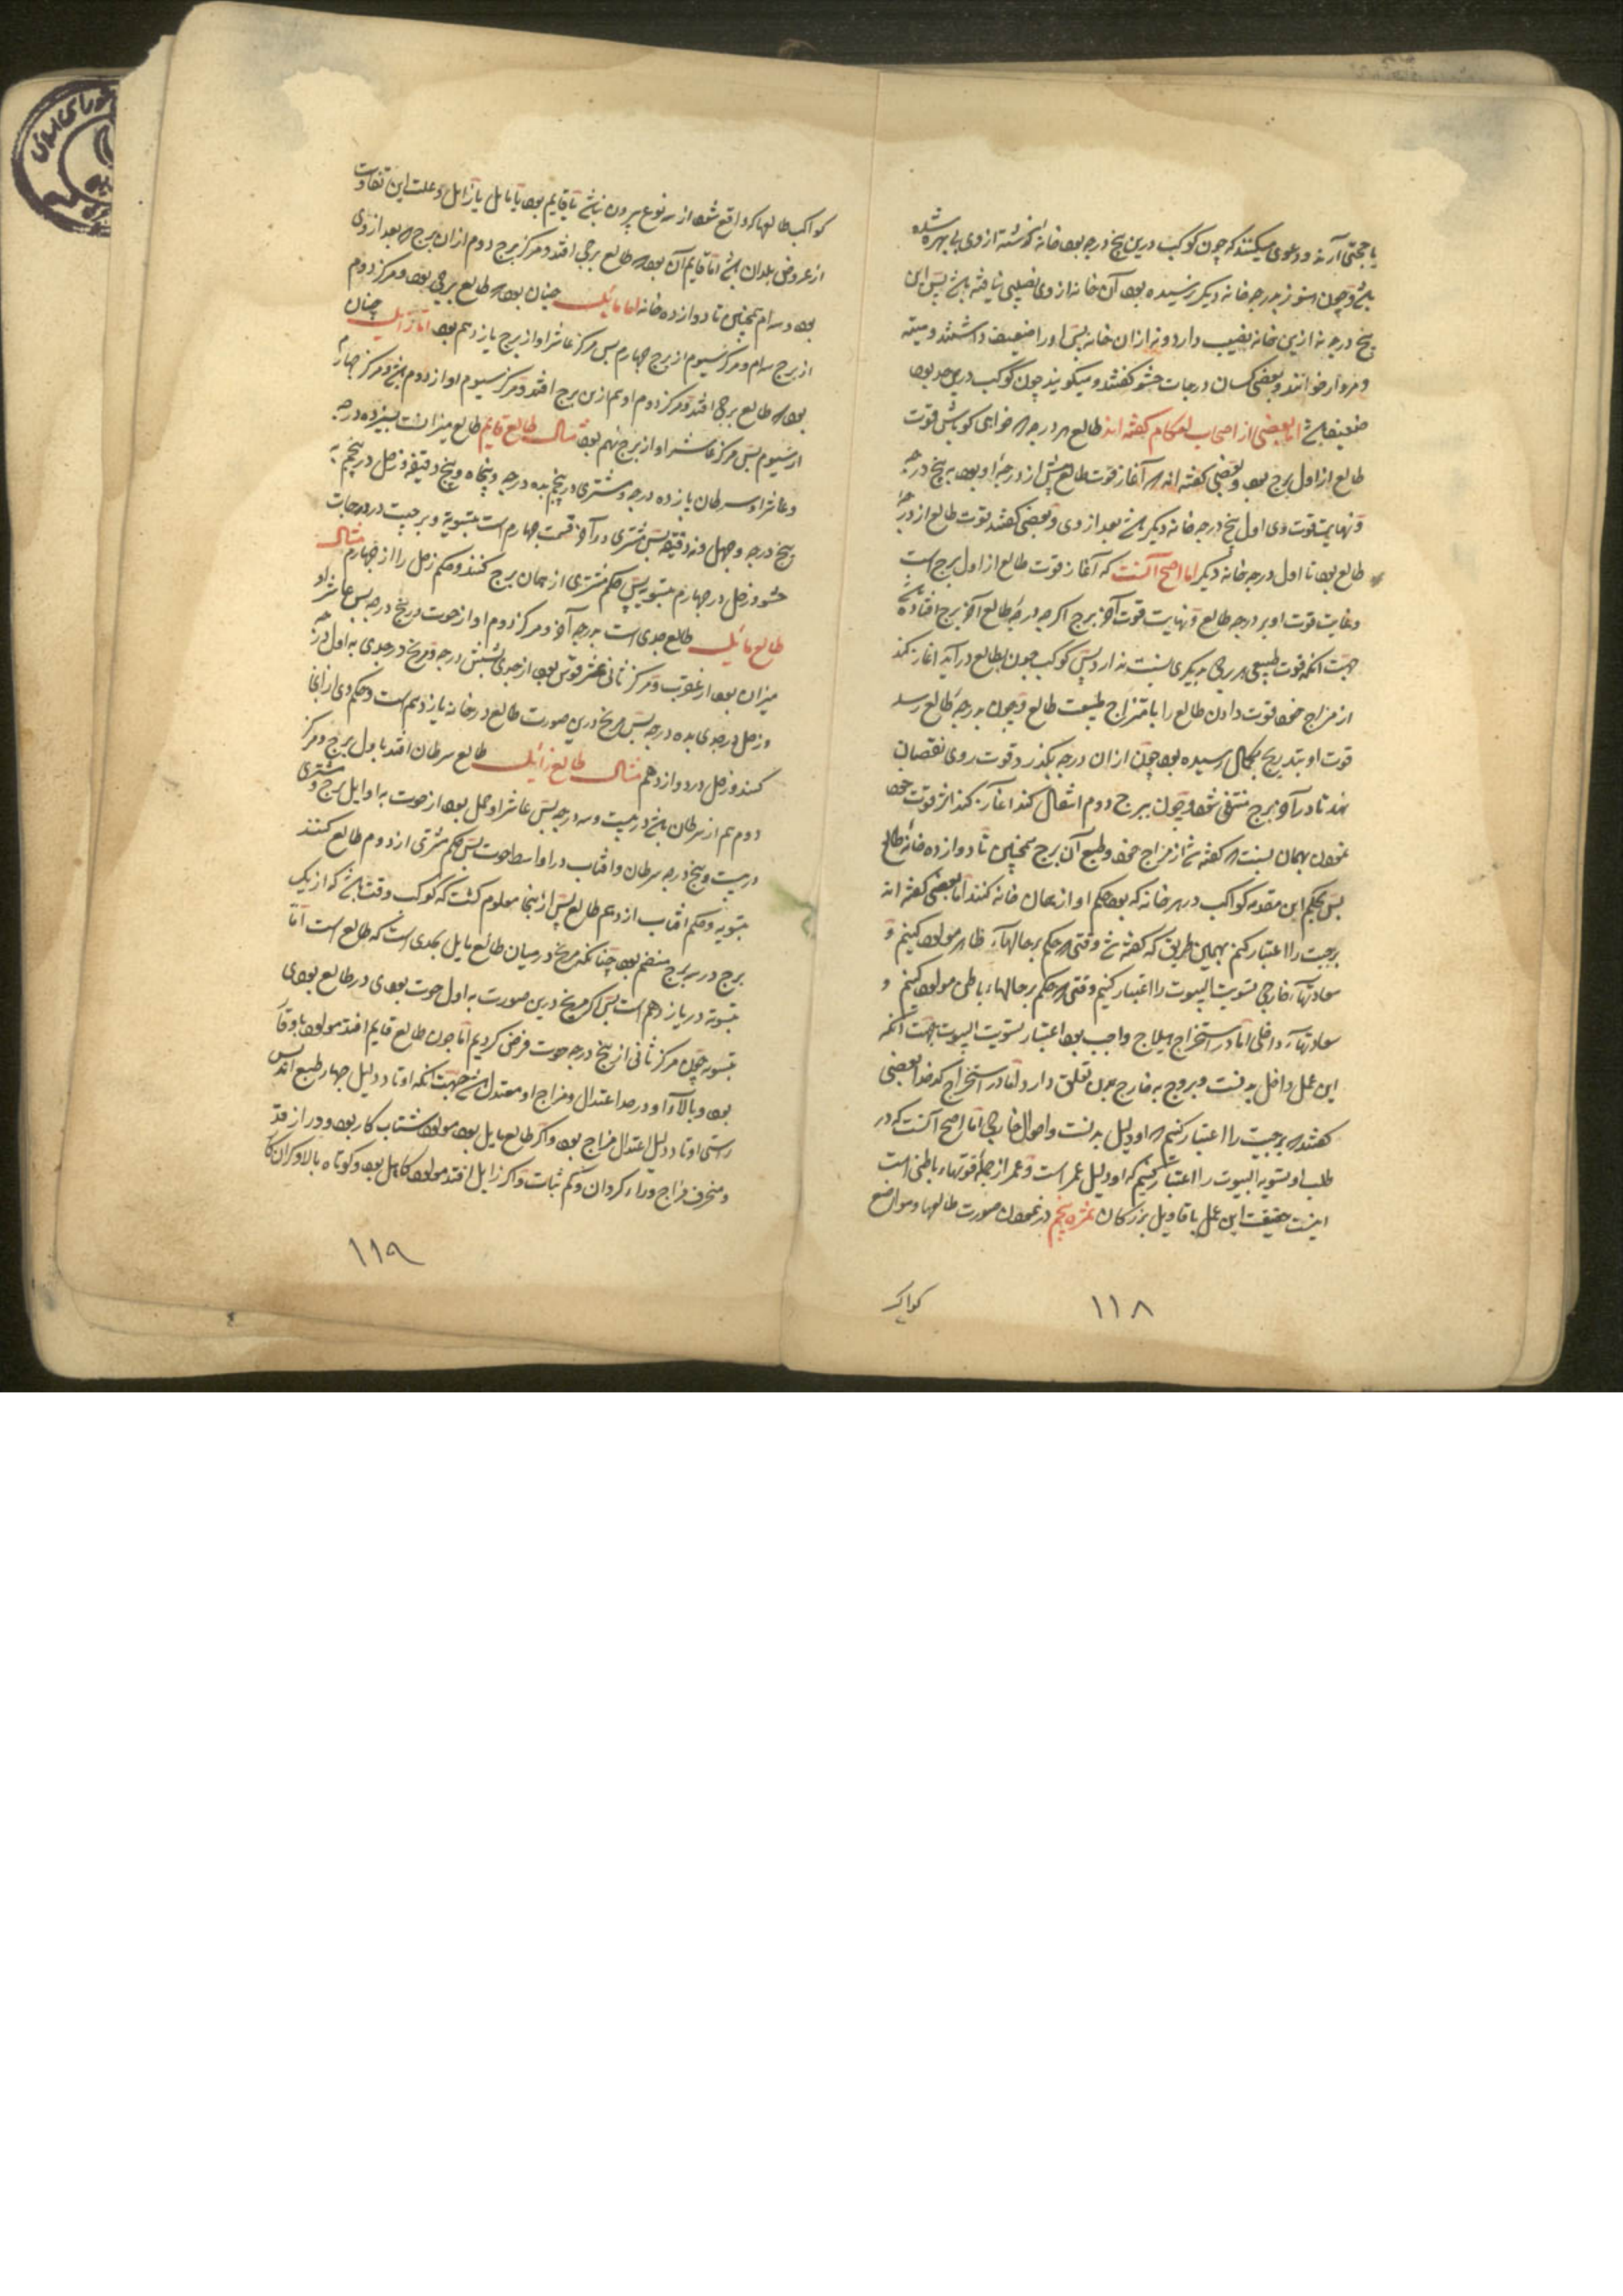 یا حجتی آرند و دعوی میکنند که چون کوکب درین پنج درجه بود خانهٔ گذشته از وی بی بهره شده
باشد و چون هنوز بدرجه خانه دیکر نرسیده بود آن خانه از وی نصیبی نیافته باشد پس این
پنج درجه نه ازین خانه نصیب دارد و نه از ان خانه پس او را ضعیف داشتند و میته
و مردار خوانند و بعضی کسان درجات حشو کفتند و میکویند چون کوکب درین حد بود
ضعیف باشد اما بعضی از اصحاب احکام کفته اند طالع هر درجه که خواهی کو باش قوت
طالع از اول برج بود و بعضی کفته اند که آغاز قوت طالع پیش از درجهٔ او بود به پنج درجه
و نهایت قوت وی اول پنج درجه خانه دیکر باشد بعد از وی و بعضی کفتند قوت طالع از درجهٔ
طالع بود تا اول درجه خانه دیکر اما اصح آنست که آغاز قوت طالع از اول برج است
و غایت قوت او بر درجه طالع و نهایت قوت آخر برج اکرچه درجه طالع آخر برج افتاده باشد
جهت انکه قوت طبیعی هر برجی بدیکری نسبت ندارد پس کوکب چون بطالع درآید اغاز کند
از مزاج خود قوت دادن طالع را با متزاج طبیعت طالع و چون بدرجه طالع رسد
قوت او بتدریج بکمال رسیده بود چون از ان درجه بکذرد قوت روی نقصان
نهد تا در آخر برج منتفی شود و چون ببرج دوم انتقال کند اغاز کند اثر قوت خود
نمودن بهمان نسبت که کفته شد از مزاج خود و طبع آن برج همچنین تا دوازده خانه طالع
پس بحکم این مقدمه کواکب در هر خانه که بود حکم او از همان خانه کنند اما بعضی کفته اند
برجیت را اعتبار کنم بهمین طریق که کفته شد وقتی که حکم بر حالهاء ظاهر مولود کنیم و
سعادتهاء خارجی تسویت البیوت را اعتبار کنیم وقتی که حکم بر حالهاء باطن مولود کنیم و
سعادتهاء داخلی اما در استخراج هیلاج واجب بود اعتبار تسویت البیوت بجهت انکه
این عمل داخل بدنست و بروج به خارج بدن تعلق دارد اما در استخراج کدخدا بعضی
کفتند که برجیت را اعتبار کنیم که او دلیل بدنست و احوال خارجی اما اصح آنست که در
طلب او تسویه البیوت را اعتبار کنیم که او دلیل عمر است و عمر از جمله قوتهاء باطنی است
اینست حقیقت این عمل با قاویل بزرکان ثمره پنجم در نمودن صورت طالعها و مواضع
کواکب
۱۱۸
کواکب طالعها که واقع شود از سه نوع بیرون نباشد یا قایم بود یا مایل یا زایل و علت این تفاوت
از عروض بلدان باشد اما قایم آن بود که طالع برجی افتد و مرکز برج دوم از ان برج که بعد از وی
بود و سه ام همچنین تا دوازده خانه اما مائل چنان بود که طالع برجی بود و مرکز دوم
از برج سه ام و مرکز سیوم از برج چهارم پس مرکز عاشر او از برج یازدهم بود اما زایل چنان
بود که طالع برجی افتد و مرکز دوم او هم ازین برج افتد و مرکز سیوم او از دوم باشد و مرکز چهارم
از سیوم پس مرکز عاشر او از برج نهم بود مثال طالع قایم طالع میزان است بسیزده درجه
و عاشر او سرطان یازده درجه و مشتری در پنجم بده درجه و پنجاه و پنج دقیقه و زحل در پنجم به
پنج درجه و چهل و نه دقیقه پس مشتری در آخر قسمت چهارم است بتسویه و برجیت در درجات
حشو و زحل در چهارم بتسویه پس حکم مشتری از همان برج کنند و حکم زحل را از چهارم مثال
طالع مائل طالع جدی است بدرجه آخر و مرکز دوم او از حوت در پنج درجه پس عاشر او
میزان بود از عقرب و مرکز ثانی عشر قوس بود از جدی بشش درجه و مریخ در جدی به اول درجه
و زحل در جدی بده درجه پس مریخ درین صورت طالع در خانه یازدهم است و حکم وی از انجا
کنند و زحل در دوازدهم مثال طالع زائل طالع سرطان افتد باول برج و مرکز
دوم هم از سرطان باشد در بیست و سه درجه پس عاشر او حمل بود از حوت به اوایل برج و مشتری
در بیست و پنج درجه سرطان و افتاب در اواسط حوت پس حکم مشتری از دوم طالع کنند
بتسویه و حکم افتاب از دهم طالع پس از ینجا معلوم کشت که کوکب وقت باشد که از یک
برج در سه برج منضم بود چنانکه مریخ در میان طالع مایل بجدی است که طالع است اما
بتسویه در یازدهم است پس اکر مریخ درین صورت به اول حوت بودی در طالع بودی
بتسویه چون مرکز ثانی از پنج درجه حوت فرض کردیم اما چون طالع قایم افتد مولود با وقار
بود و بالاء او در حد اعتدال و مزاج او معتدل باشد جهت انکه اوتاد دلیل چهار طبع اند پس
راستی اوتاد دلیل اعتدال مزاج بود و اکر طالع مایل بود مولود شتاب کار بود و دراز قد
و منحرف مزاج و کم ثبات و اکر زایل افتد مولود کاهل بود و کوتاه بالا و کران
۱۱۹